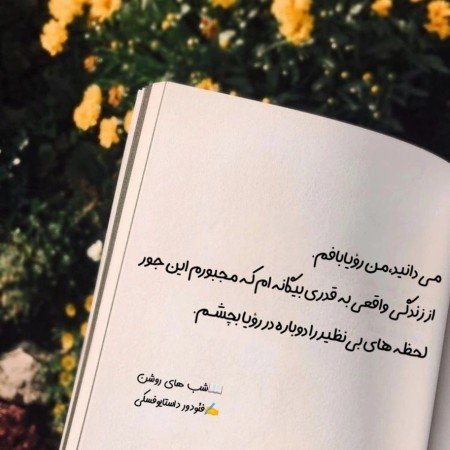 می دانید، من رؤیابافم.
از زندگی واقعی به قدری بیگانه ام که مجبورم این جور
لحظه های بی نظیر را دوباره در رؤیا بچشم.
📖شب های روشن
✍️فئودور داستایوفسکی